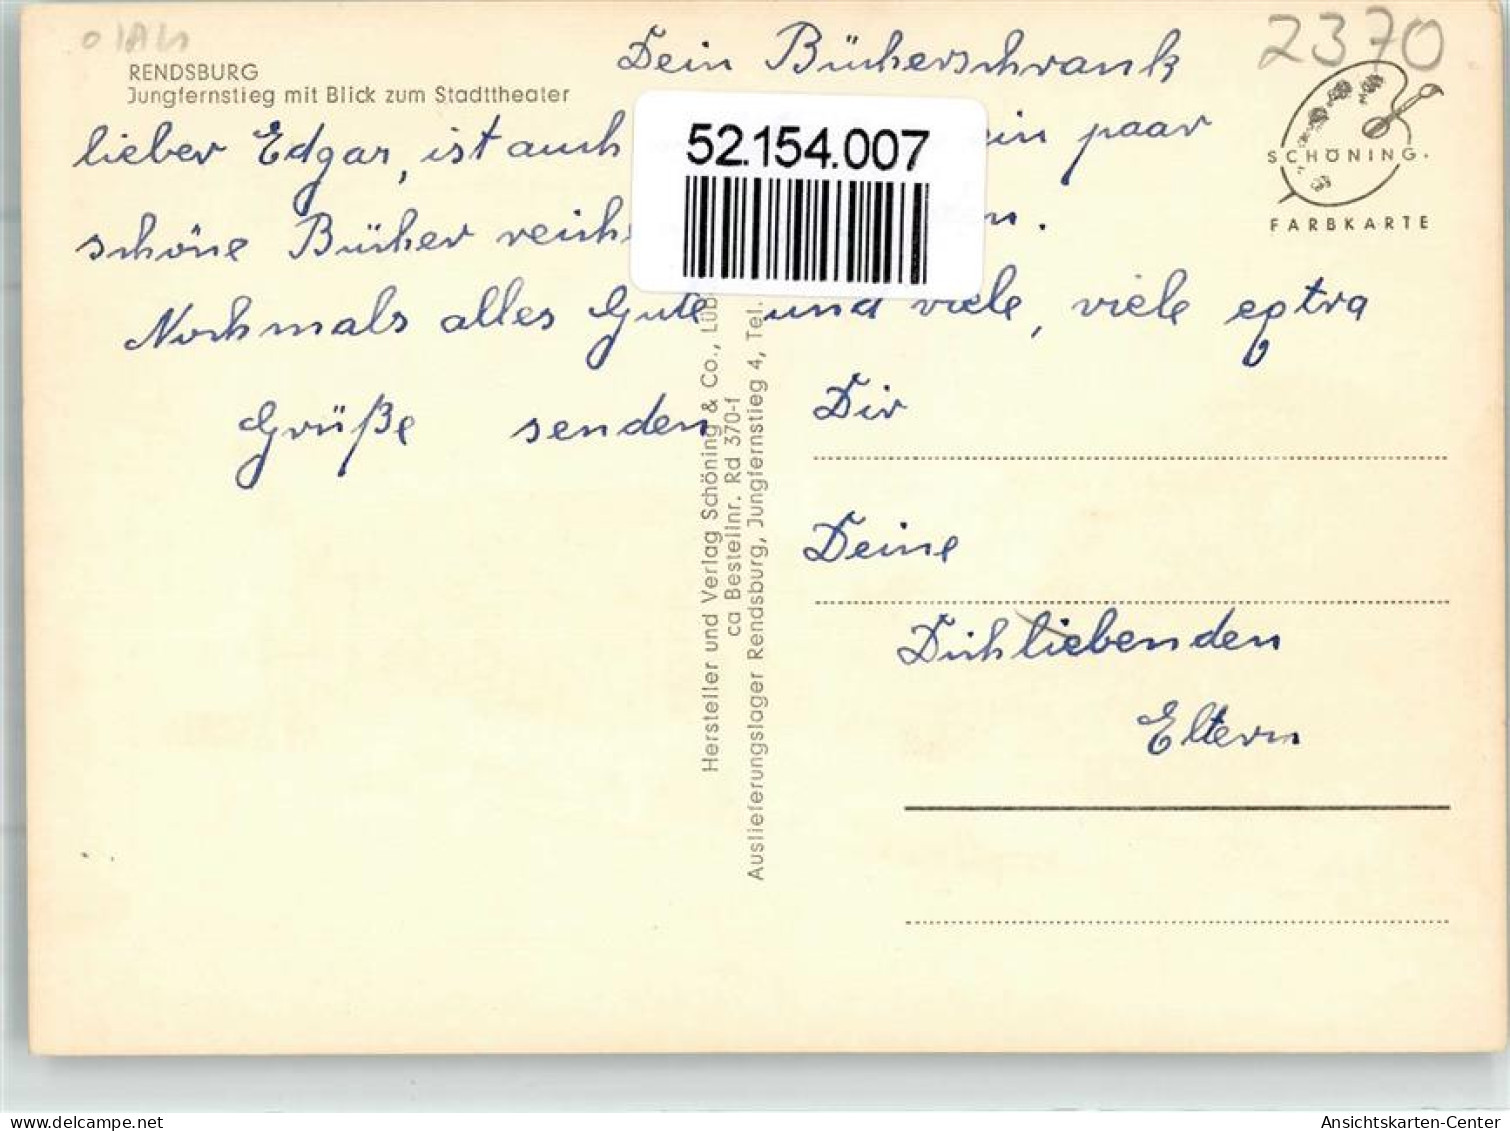 2370
RENDSBURG
Jungfernstieg mit Blick zum Stadttheater
Dein Bücherschrank
lieber Edgar, ist auch ein paar
schöne Bücher
Nochmals alles Gute und viele, viele extra
Grüße senden
Dir
Deine
Dichliebenden
Eltern
52.154.007
SCHÖNING.
FARBKARTE
Hersteller und Verlag Schöning & Co., Lüb
ca Bestellnr. Rd 370-f
Auslieferungslager Rendsburg, Jungfernstieg 4, Tel.
Ansichtskarten-Center
delcampe.net